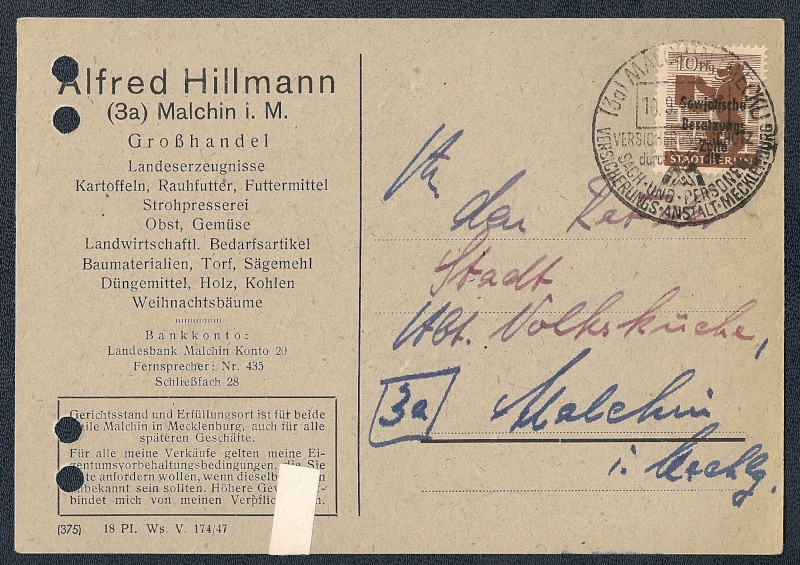 Alfred Hillmann
(3a) Malchin i. M.
Großhandel
Landeserzeugnisse
Kartoffeln, Rauhfutter, Futtermittel
Strohpresserei
Obst, Gemüse
Landwirtschaftl. Bedarfsartikel
Baumaterialien, Torf, Sägemehl
Düngemittel, Holz, Kohlen
Weihnachtsbäume
Bankkonto:
Landesbank Malchin Konto 20
Fernsprecher: Nr. 435
Schließfach 28
Gerichtsstand und Erfüllungsort ist für beide
eile Malchin in Mecklenburg, auch für alle
späteren Geschäfte.
Für alle meine Verkäufe gelten meine Ei-
gentumsvorbehaltungsbedingungen, die Sie
tte anfordern wollen, wenn dieselb en
nbekannt sein sollten. Höhere Gew
bindet mich von meinen Verpfli
(375) 18 PI. Ws. V. 174/47
10
Sowjetische
Besatzungs
Zone
STADT BERLIN
(3a) MALCHIN
18.9.
VERSICHE
durch die
SACH- UND PERSONE
VERSICHERUNGS-ANSTALT-MECKLENBURG
An
den
Stadt
Abt. Volksküche,
3a Malchin
i. Mecklg.